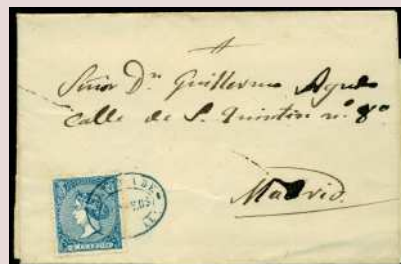 Señor Dn Guillermo
calle de S. Quintin nº 8º
Madrid.